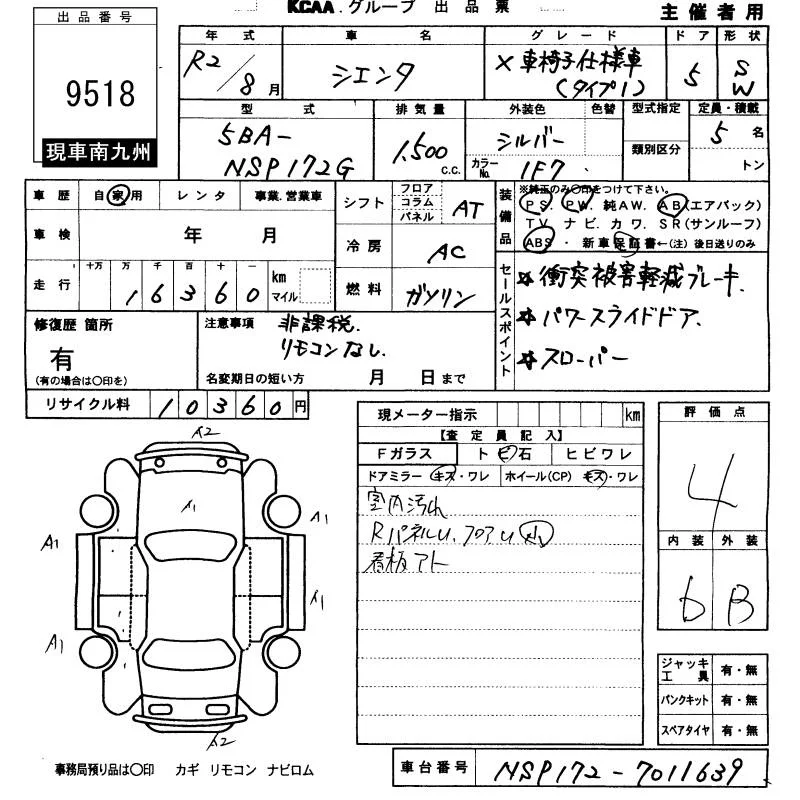 KCAA グループ 出品票
主催者用
出品番号
9518
現車南九州
年式 車名 グレード ドア 形状
R2/8月 シエンタ X 車椅子仕様車 (タイプ1) 5 SW
型式 排気量 外装色 色替 型式指定 定員・積載
5BA-NSP172G 1,500 C.C. シルバー 5名
カラーNo. 1F7 類別区分 トン
車歴 自家用 レンタ 事業.営業車
シフト フロア コラム パネル AT
装備品 ※純正のみ○印をつけて下さい。
PS. PW. 純AW. AB(エアバック)
TV. ナビ. カワ. SR(サンルーフ)
ABS・新車保証書←(注)後日送りのみ
車検 年 月
冷房 AC
走行 十万 万 千 百 十 一 km マイル
16360
燃料 ガソリン
セールスポイント
☆衝突被害軽減ブレーキ.
☆パワースライドドア.
☆スローパー
修復歴 箇所
有
(有の場合は○印を)
注意事項 非課税.
リモコンなし.
名変期日の短い方 月 日まで
リサイクル料 10360円
現メーター指示 km
【査定員記入】
Fガラス ト ビ 石 ヒビワレ
ドアミラー キズ・ワレ ホイール(CP) キズ・ワレ
室内汚れ
RパネルU.フロアU
看板アト
評価点
4
内装 外装
6 B
A2
A1
A1 A1
A1 A1
A2
ジャッキ工具 有・無
パンクキット 有・無
スペアタイヤ 有・無
事務局預り品は○印 カギ リモコン ナビロム
車台番号 NSP172-7011639